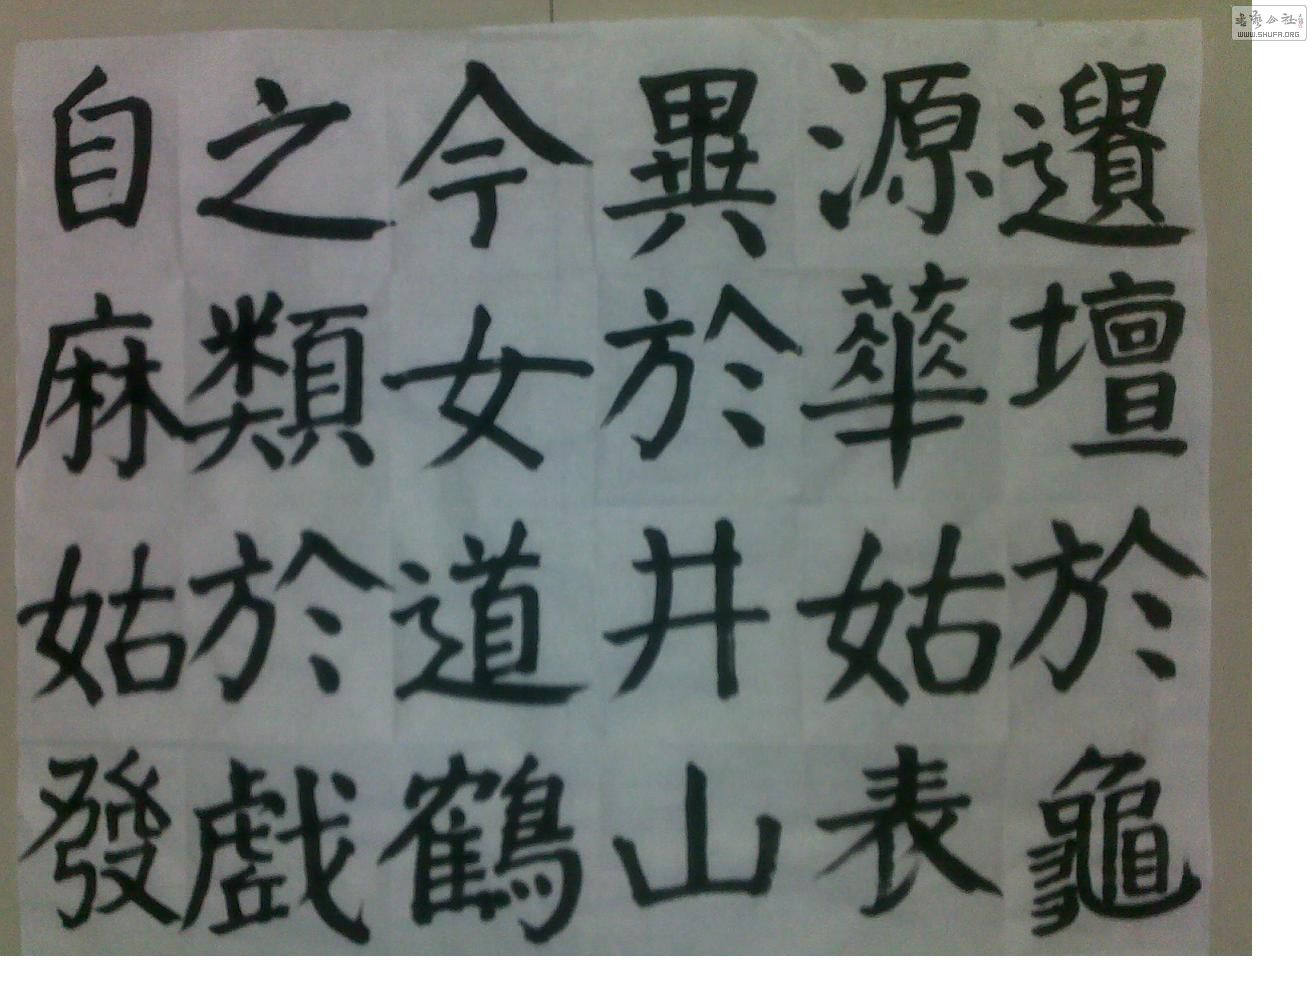 遺壇於龜
源華姑表
異於井山
今女道鶴
之類於戲
自麻姑發
WWW.SHUFA.ORG